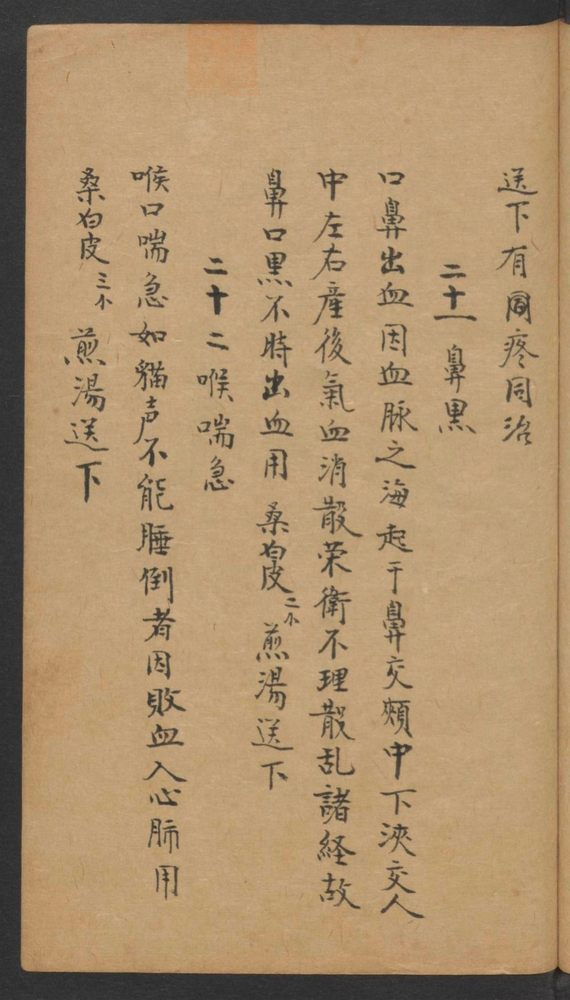 送下有同疼同治
二十一鼻黒
口鼻出血因血脉之海起于鼻交頰中下浹交人
中左右産後氣血消散荣衛不理散乱諸経故
鼻口黒不時出血用桑白皮二小煎湯送下
二十二喉喘急
喉口喘急如貓声不能睡倒者因敗血入心肺用
桑白皮三小煎湯送下